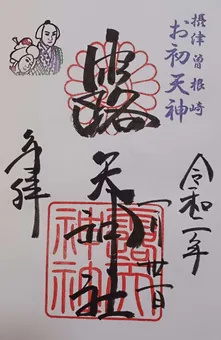 摂津曾根崎
お初天神
令和二年
露天神社
奉拝
露天
神社